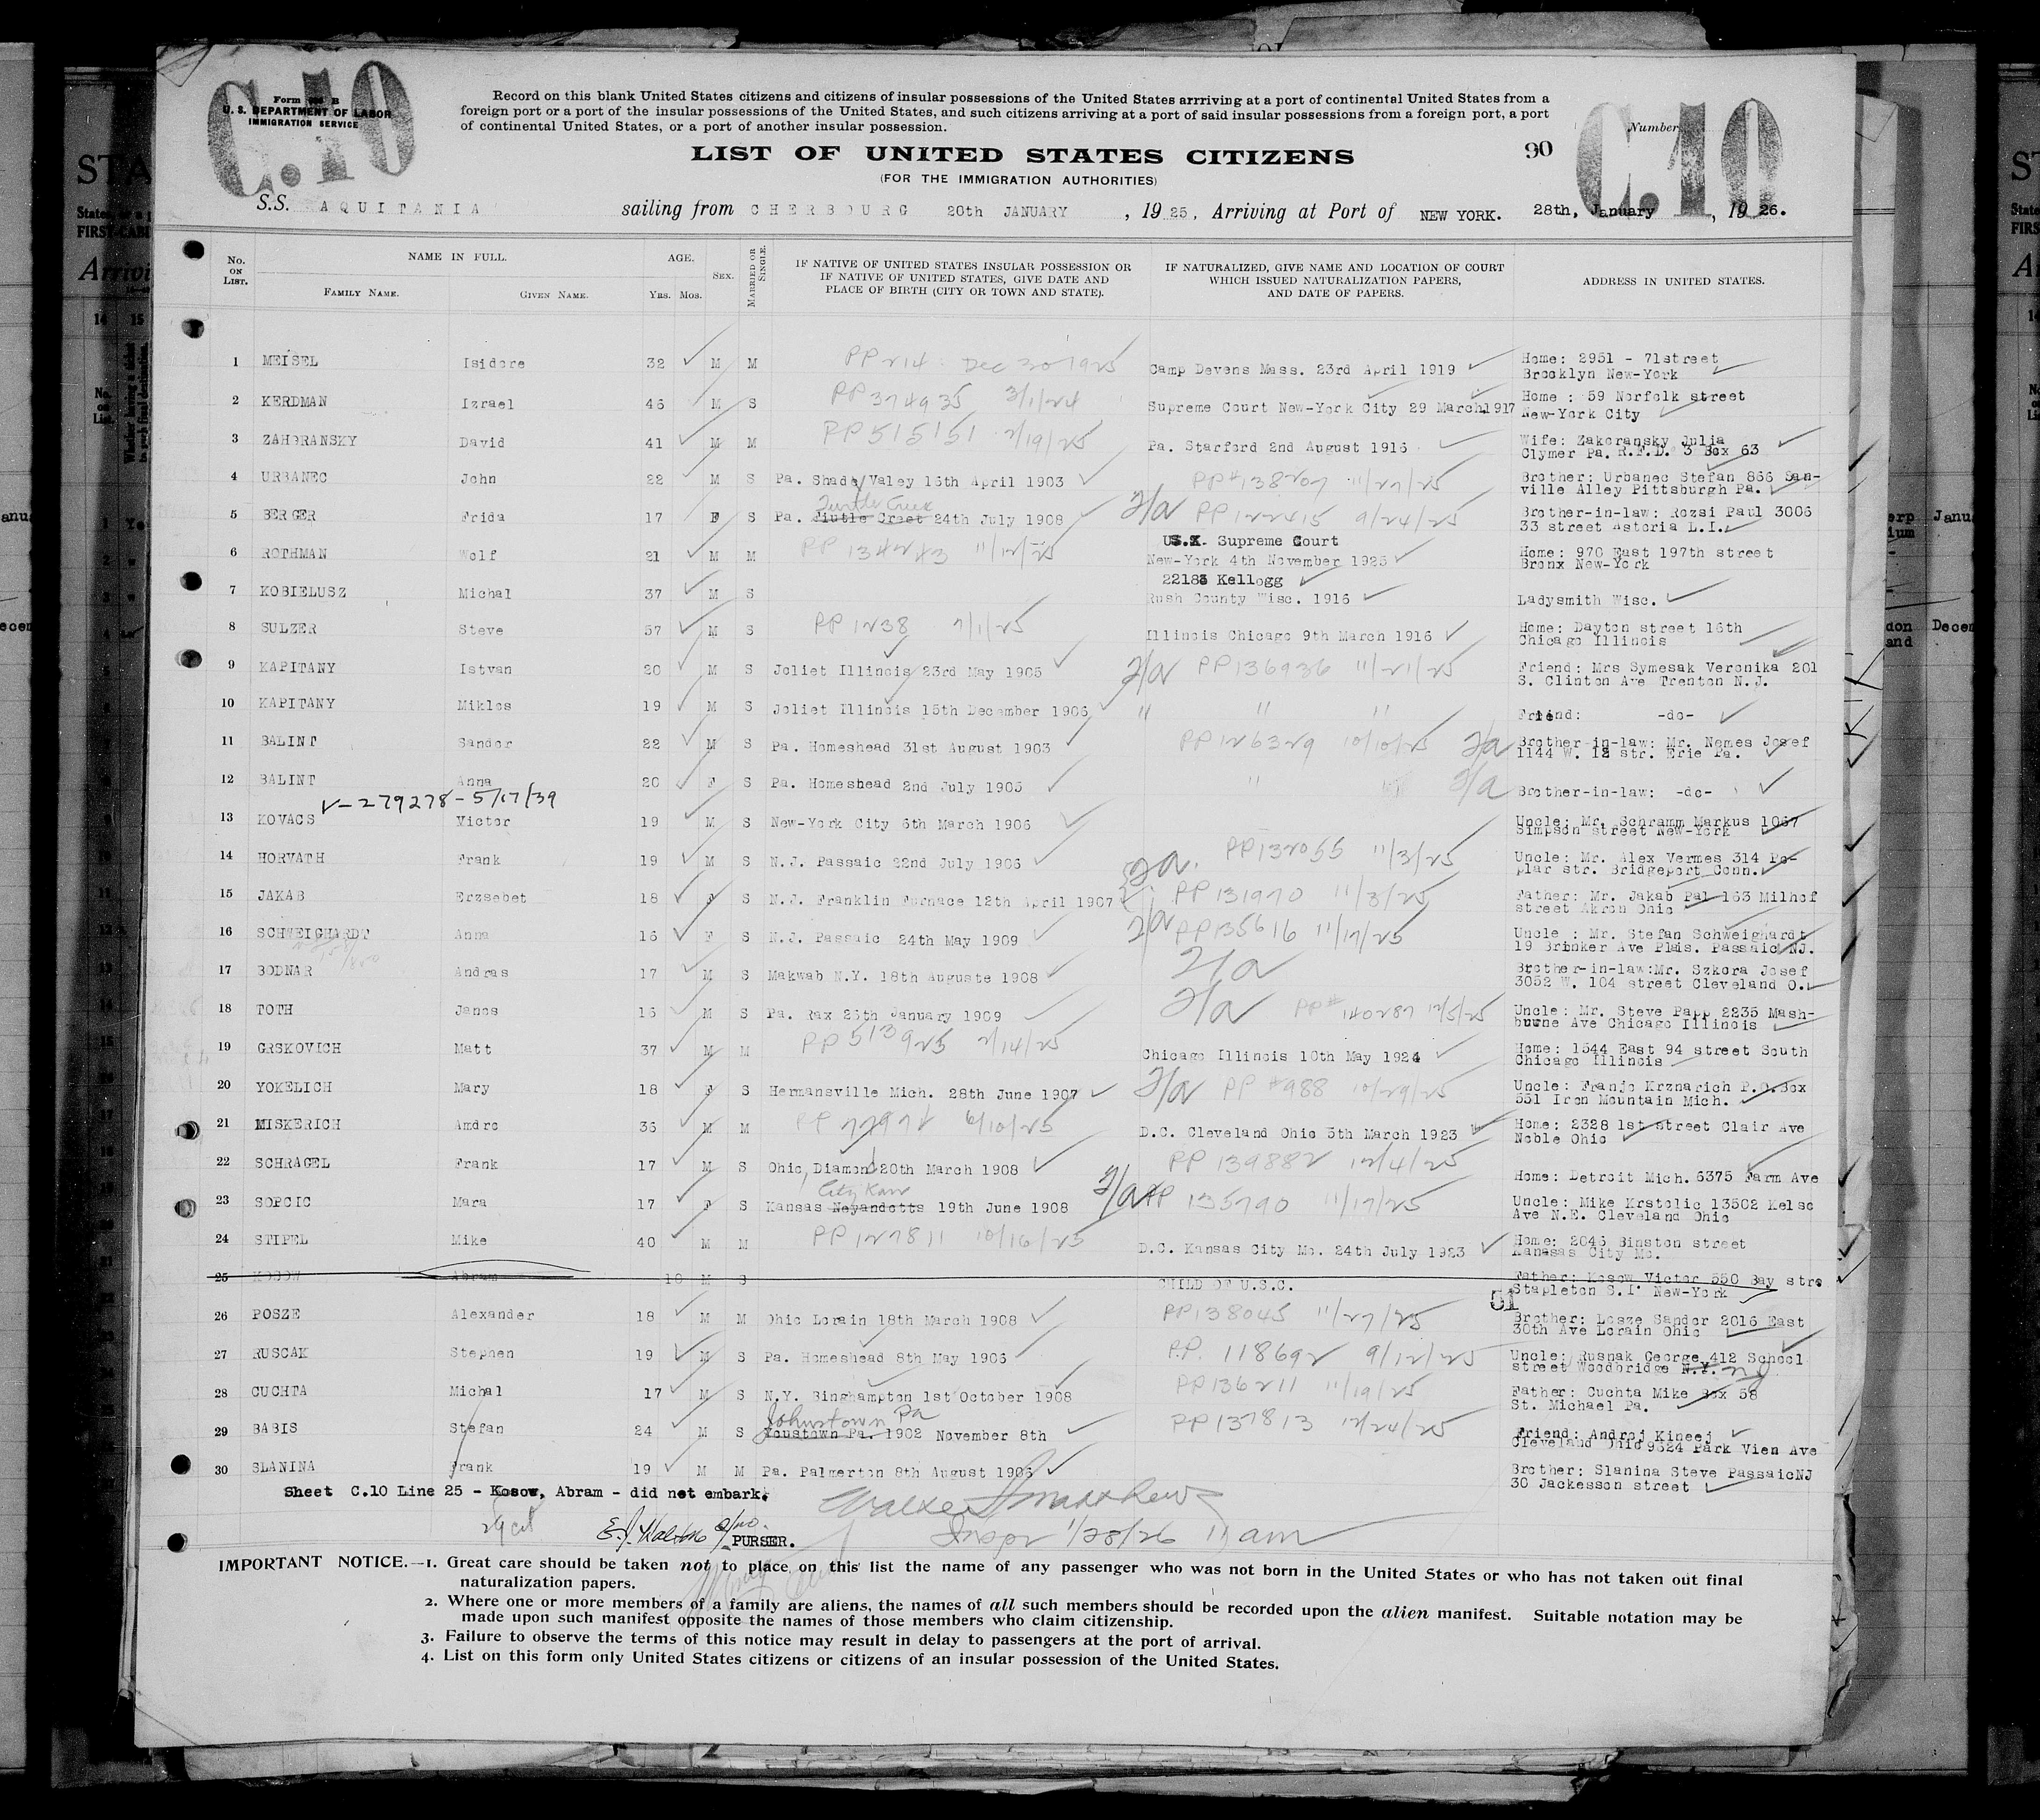 C.10
Form 500 B
U. S. DEPARTMENT OF LABOR
IMMIGRATION SERVICE
Record on this blank United States citizens and citizens of insular possessions of the United States arrriving at a port of continental United States from a
foreign port or a port of the insular possessions of the United States, and such citizens arriving at a port of said insular possessions from a foreign port, a port
of continental United States, or a port of another insular possession.
Number
C.10
LIST OF UNITED STATES CITIZENS
90
(FOR THE IMMIGRATION AUTHORITIES)
S.S. AQUITANIA sailing from CHERBOURG 20th JANUARY , 19 25, Arriving at Port of NEW YORK. 28th, January , 19 26.
No. ON LIST.
NAME IN FULL.
FAMILY NAME. GIVEN NAME.
AGE.
YRS. MOS.
SEX.
MARRIED OR SINGLE.
IF NATIVE OF UNITED STATES INSULAR POSSESSION OR
IF NATIVE OF UNITED STATES, GIVE DATE AND
PLACE OF BIRTH (CITY OR TOWN AND STATE).
IF NATURALIZED, GIVE NAME AND LOCATION OF COURT
WHICH ISSUED NATURALIZATION PAPERS,
AND DATE OF PAPERS.
ADDRESS IN UNITED STATES.
1 MEISEL Isidore 32 M M PP 214 Dec 30 1925 Camp Devens Mass. 23rd April 1919 Home: 2951 - 71street
Brooklyn New-York
2 KERDMAN Izrael 46 M S PP 374935 3/1/24 Supreme Court New-York City 29 March 1917 Home : 59 Norfolk street
New-York City
3 ZAHORANSKY David 41 M M PP 515151 2/19/25 Pa. Starford 2nd August 1916 Wife: Zakoransky Julia
Clymer Pa. R.F.D. 3 Box 63
4 URBANEC John 22 M S Pa. Shade/Valey 16th April 1903 PP# 138207 11/27/25 Brother: Urbanec Stefan 866 San-
ville Alley Pittsburgh Pa.
Turtle Creek
5 BERGER Frida 17 F S Pa. Tiutle Creet 24th July 1908 2/a PP 122415 9/24/25 Brother-in-law: Rozsi Paul 3006
33 street Astoria L.I.
U.S. Supreme Court
6 ROTHMAN Wolf 21 M M PP 134243 11/12/25 New-York 4th November 1925 Home: 970 East 197th street
Bronx New-York
22183 Kellogg
7 KOBIELUSZ Michal 37 M S Rush County Wisc. 1916 Ladysmith Wisc.
8 SULZER Steve 57 M S PP 1238 7/1/25 Illinois Chicago 9th March 1916 Home: Dayton street 16th
Chicago Illinois
9 KAPITANY Istvan 20 M S Joliet Illinois 23rd May 1905 2/a PP136936 11/21/25 Friend: Mrs Symesak Veronika 201
S. Clinton Ave Trenton N.J.
10 KAPITANY Miklos 19 M S Joliet Illinois 15th December 1906 " " " Friend: -do-
11 BALINT Sandor 22 M S Pa. Homeshead 31st August 1903 PP126329 10/10/25 2/a Brother-in-law: Mr. Nemes Josef
1144 W. 12 str. Erie Pa.
12 BALINT Anna 20 F S Pa. Homeshead 2nd July 1905 " " 2/a Brother-in-law: -do-
V-279278-5/17/39
13 KOVACS Victor 19 M S New-York City 6th March 1906 Uncle: Mr. Schramm Markus 1067
Simpson street New-York
14 HORVATH Frank 19 M S N.J. Passaic 22nd July 1906 2a. PP132055 11/3/25 Uncle: Mr. Alex Vermes 314 Po-
plar str. Bridgeport Conn.
15 JAKAB Erzsebet 18 F S N.J. Franklin Furnace 12th April 1907 PP 131970 11/3/25 Father: Mr. Jakab Pal 163 Milhof
street Akron Ohio
16 SCHWEIGHARDT Anna 16 F S N.J. Passaic 24th May 1909 2/a PP135616 11/17/25 Uncle : Mr. Stefan Schweighardt
19 Brinker Ave Plais. Passaic NJ.
17 BODNAR Andras 17 M S Makwab N.Y. 18th Auguste 1908 2/a Brother-in-law:Mr. Szkora Josef
3052 W. 104 street Cleveland O.
18 TOTH Janos 16 M S Pa. Rax 26th January 1909 2/a PP# 140287 12/5/25 Uncle: Mr. Steve Papp 2235 Mash-
burne Ave Chicago Illinois
19 GRSKOVICH Matt 37 M M PP 513925 2/14/25 Chicago Illinois 10th May 1924 Home: 1544 East 94 street South
Chicago Illinois
20 YOKELICH Mary 18 F S Hermansville Mich. 28th June 1907 2/a PP #988 10/29/25 Uncle: Franjo Krznarich P.O.Box
551 Iron Mountain Mich.
21 MISKERICH Andro 36 M M PP 6/10/25 D.C. Cleveland Ohio 5th March 1923 Home: 2328 1st street Clair Ave
Noble Ohio
22 SCHRAGEL Frank 17 M S Ohio, Diamond 20th March 1908 PP 139882 12/4/25 Home: Detroit Mich. 6375 Farm Ave
City Kan
23 SOPCIC Mara 17 F S Kansas Neyandotts 19th June 1908 2/a PP 135790 11/17/25 Uncle: Mike Krstolic 13502 Kelso
Ave N.E. Cleveland Ohio
24 STIPEL Mike 40 M M PP 127811 10/16/25 D.C. Kansas City Mo. 24th July 1923 Home: 2045 Binston street
Kanasas City Mo.
25 KOSOW Abram 10 M S CHILD OF U.S.C. Father: Kosow Victor 550 Bay stre
Stapleton S.I. New-York
51
26 POSZE Alexander 18 M M Ohio Lorain 18th March 1908 PP138045 11/27/25 Brother: Losze Sandor 2016 East
30th Ave Lorain Ohio
27 RUSCAK Stephen 19 M S Pa. Homeshead 8th May 1906 P.P. 118692 9/12/25 Uncle: Rusnak George 412 School
street Woodbridge N.Y. NJ
28 CUCHTA Michal 17 M S N.Y. Binghampton 1st October 1908 PP136211 11/19/25 Father: Cuchta Mike Box 58
St. Michael Pa.
Johnstown Pa
29 BABIS Stefan 24 M S Youstown Pa. 1902 November 8th PP137813 12/24/25 Friend: Andrej Kineej
Cleveland Ohio 9324 Park Vien Ave
30 SLANINA Frank 19 M M Pa. Palmerton 8th August 1906 Brother: Slanina Steve PassaicNJ
30 Jackesson street
Sheet C.10 Line 25 - Kosow, Abram - did not embark.
Walter J. Matthews
29 cit
PURSER.
Inspr 1/28/26 11 am
IMPORTANT NOTICE.—1. Great care should be taken not to place on this list the name of any passenger who was not born in the United States or who has not taken out final
naturalization papers.
2. Where one or more members of a family are aliens, the names of all such members should be recorded upon the alien manifest. Suitable notation may be
made upon such manifest opposite the names of those members who claim citizenship.
3. Failure to observe the terms of this notice may result in delay to passengers at the port of arrival.
4. List on this form only United States citizens or citizens of an insular possession of the United States.